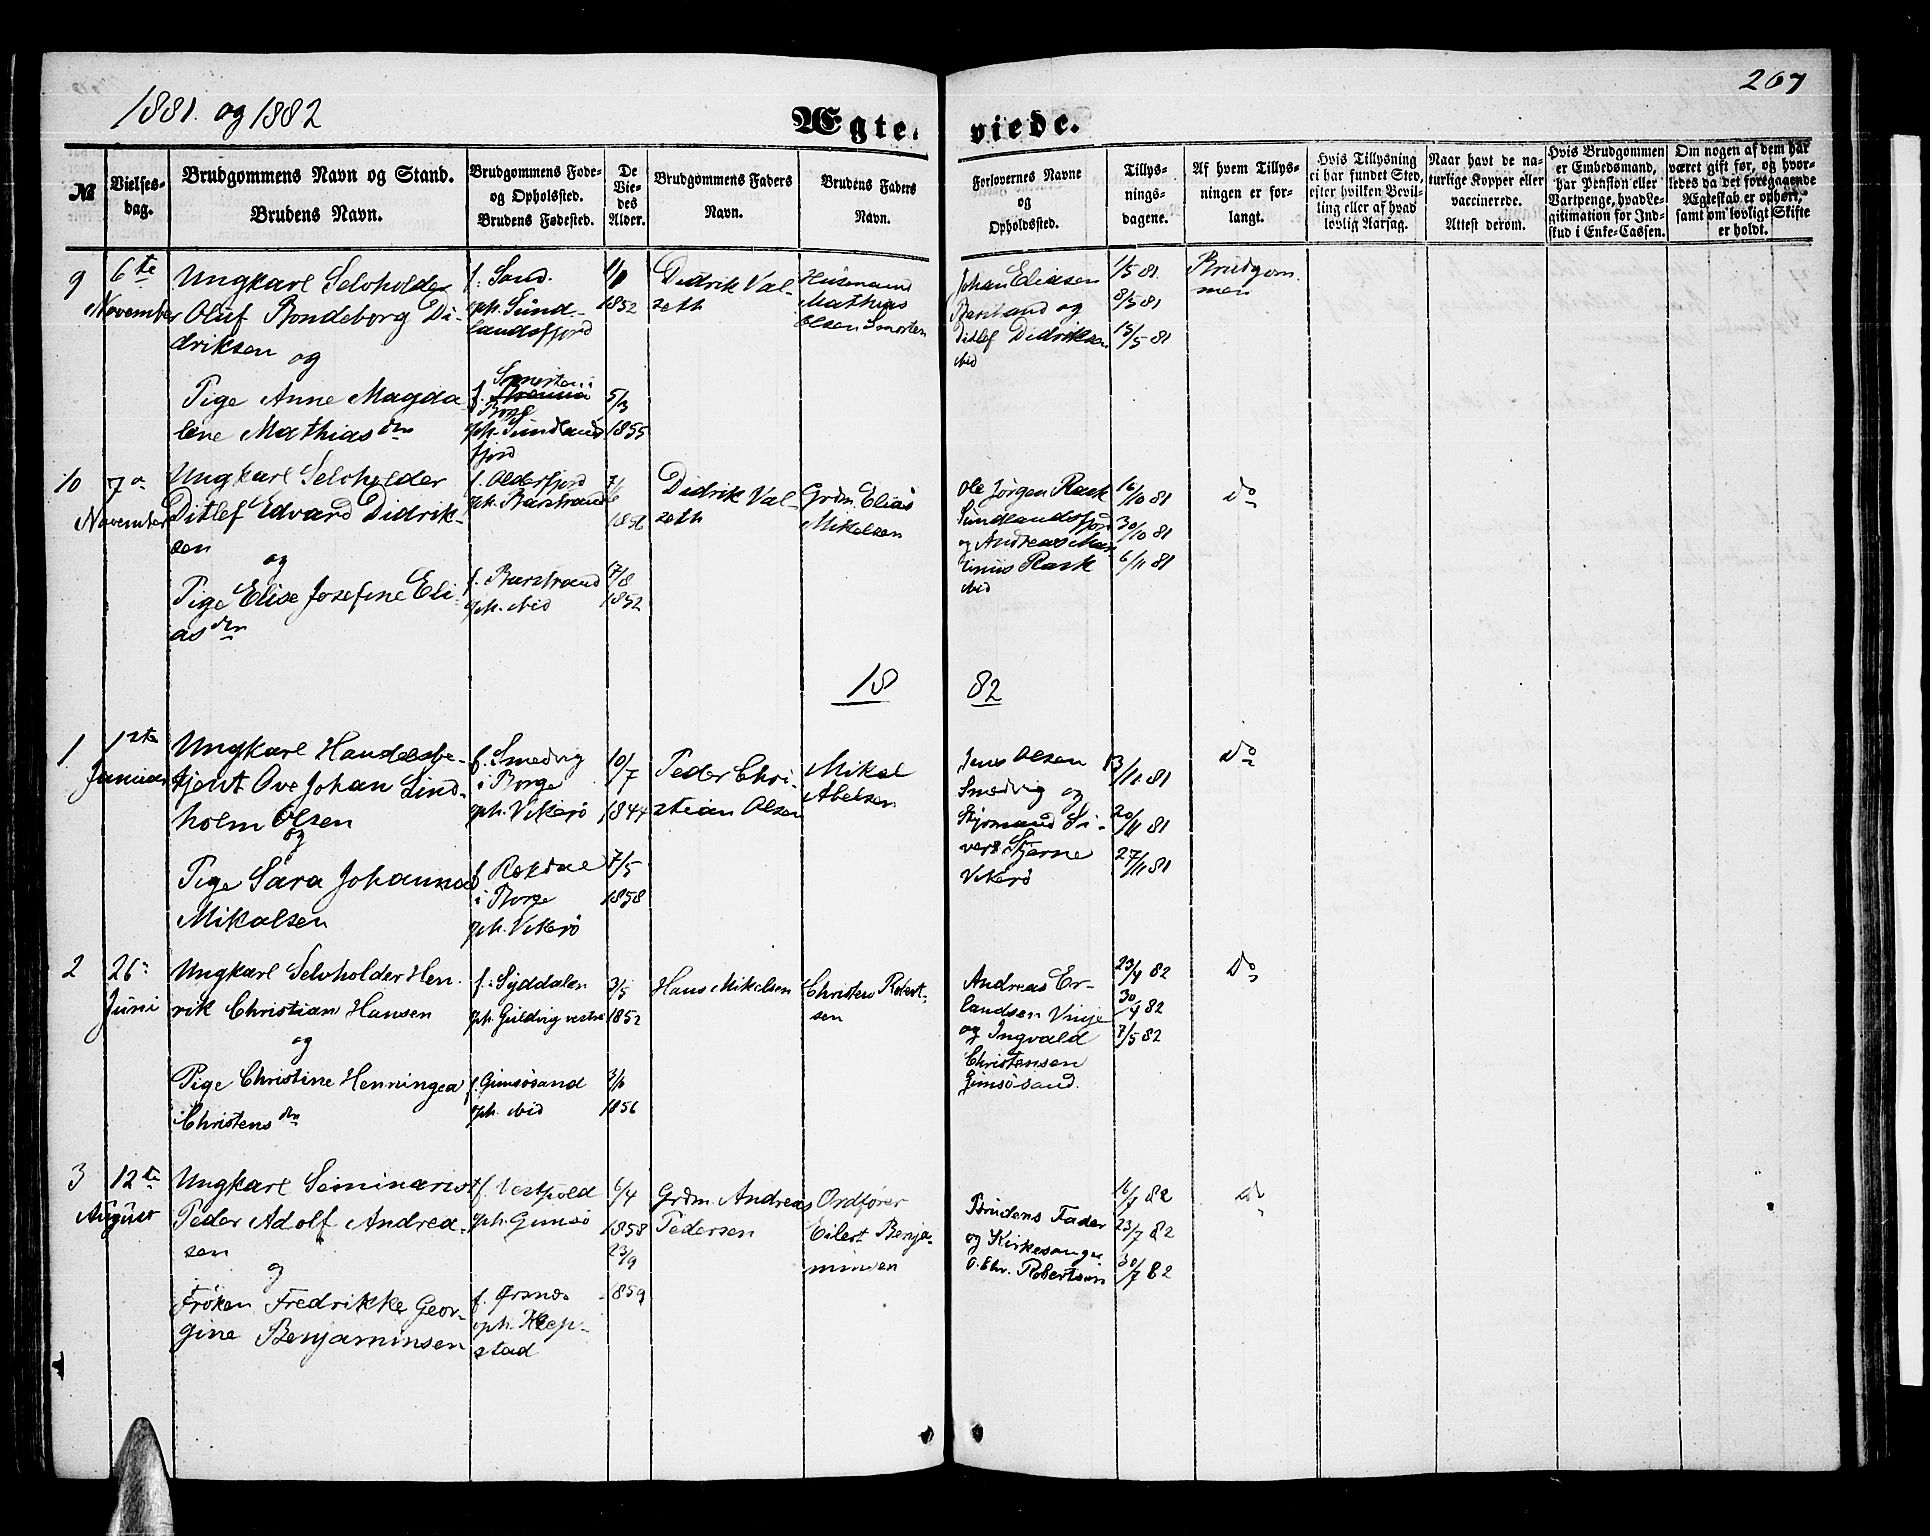 1881. og 1882
267
Ægte- viede.
№
Vielses-
dag.
Brudgommens Navn og Stand.
Brudens Navn.
Brudgommens Føde-
og Opholdsted.
Brudens Fødested.
De
Vie-
des
Alder.
Brudgommens Faders
Navn.
Brudens Faders
Navn.
Forlovernes Navne
og
Opholdssted.
Tillys-
nings-
dagene.
Af hvem Tillys-
ningen er for-
langt.
Hvis Tillysning
ei har fundet Sted,
efter hvilken Bevil-
ling eller af hvad
lovlig Aarsag.
Naar havt de na-
turlige Kopper eller
vaccinerede.
Attest derom.
Hvis Brudgommen
er Embedsmand,
har Pension eller
Vartpenge, hvad Le-
gitimation for Ind-
skud i Enke-Cassen.
Om nogen af dem har
været gift før, og hvor-
ledes da det foregaaende
Ægteskab er ophørt,
samt om lovligt Skifte
er holdt.
9
6te
November
Ungkarl Selvholder
Oluf Rondeborg Di-
driksen
og
Pige Anne Magda
lene Mathiasdtr
f. Sand.
oph. Sund-
landsfjord
1852
f. Smorten i
Borge
oph. Sundlands
fjord
5/3
1855
Didrik Val-
seth
Husmand
Mathias
Olsen Smorten
Johan Eliasen
Barstrand og
Ditlef Didriksen
ibid
1/5 81.
8/5 81
15/5 81
Brudgom
men
10
7de
November
Ungkarl Selvholder
Ditlef Edvard Didrik-
sen
og
Pige Elise Josefine Eli-
asdtr
f. Olderfjord
oph. Barstrand
7/6
1856
f. Barstrand
oph. ibid
7/8
1852
Didrik Val-
seth
Grdm. Elias
Mikelsen
Ole Jørgen Rask
Sundlandsfjord
og Andreas Mar-
tinus Rask
ibid
16/10 81
30/10 81
6/11 81
Do
18 82
1
1ste
Januar
Ungkarl Handelsbe-
tjent Ove Johan Lind-
holm Olsen
og
Pige Sara Johanna
Mikalsen
f. Smedvig
i Borge
oph. Vikerø
10/7
1844
f. Røkdal
i Borge
oph. Vikerø
7/5
1858
Peder Chri-
stian Olsen
Mikal
Abelsen
Jens Olsen
Smedvig og
Styrmand Si-
vert Stjerne
Vikerø
13/11 81
20/11 81
27/11 81
Do
2
26de
Juni
Ungkarl Selvholder Hen-
rik Christian Hansen
og
Pige Christine Henningea
Christensdtr
f. Syddalen
oph. Guldvig vestre
3/5
1852
f. Gimsøsand
oph. ibid
1856
Hans Mikelsen
Christen Robert-
sen
Andreas Er-
landsen Vinje
og Ingvald
Christensen
Gimsøsand.
23/4 82
30/4 82
7/5 82
Do
3
12te
August
Ungkarl Seminarist
Peder Adolf Andrea-
sen
og
Frøken Fredrikke Geor-
gine Benjaminsen
f. Vestpold
oph. Gimsø
6/4
1858
23/9
1859
f. Ørsnes
oph. Klep-
stad
Grdm. Andreas
Pedersen
Ordfører
Eilert Benja-
minsen
Brudens Fader
og Kirkesanger
O. Chr. Robertsen
16/7 82
23/7 82
30/7 82
Do